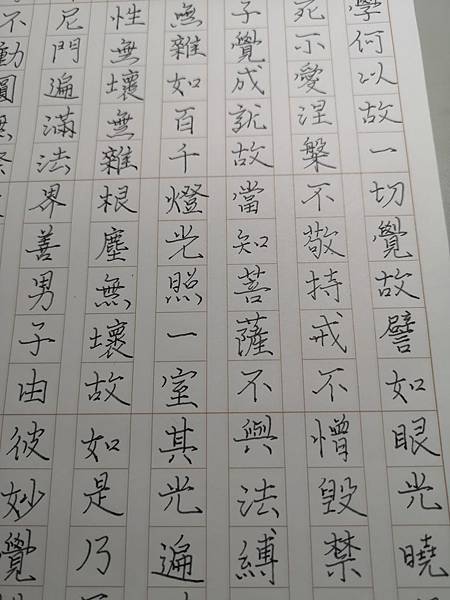 學何以故一切覺故譬如眼光曉
死不愛涅槃不敬持戒不憎毀禁
子覺成就故當知菩薩不與法縛
無雜如百千燈光照一室其光遍
性無壞無雜根塵無壞故如是乃
尼門遍滿法界善男子由彼妙覺
不動圓